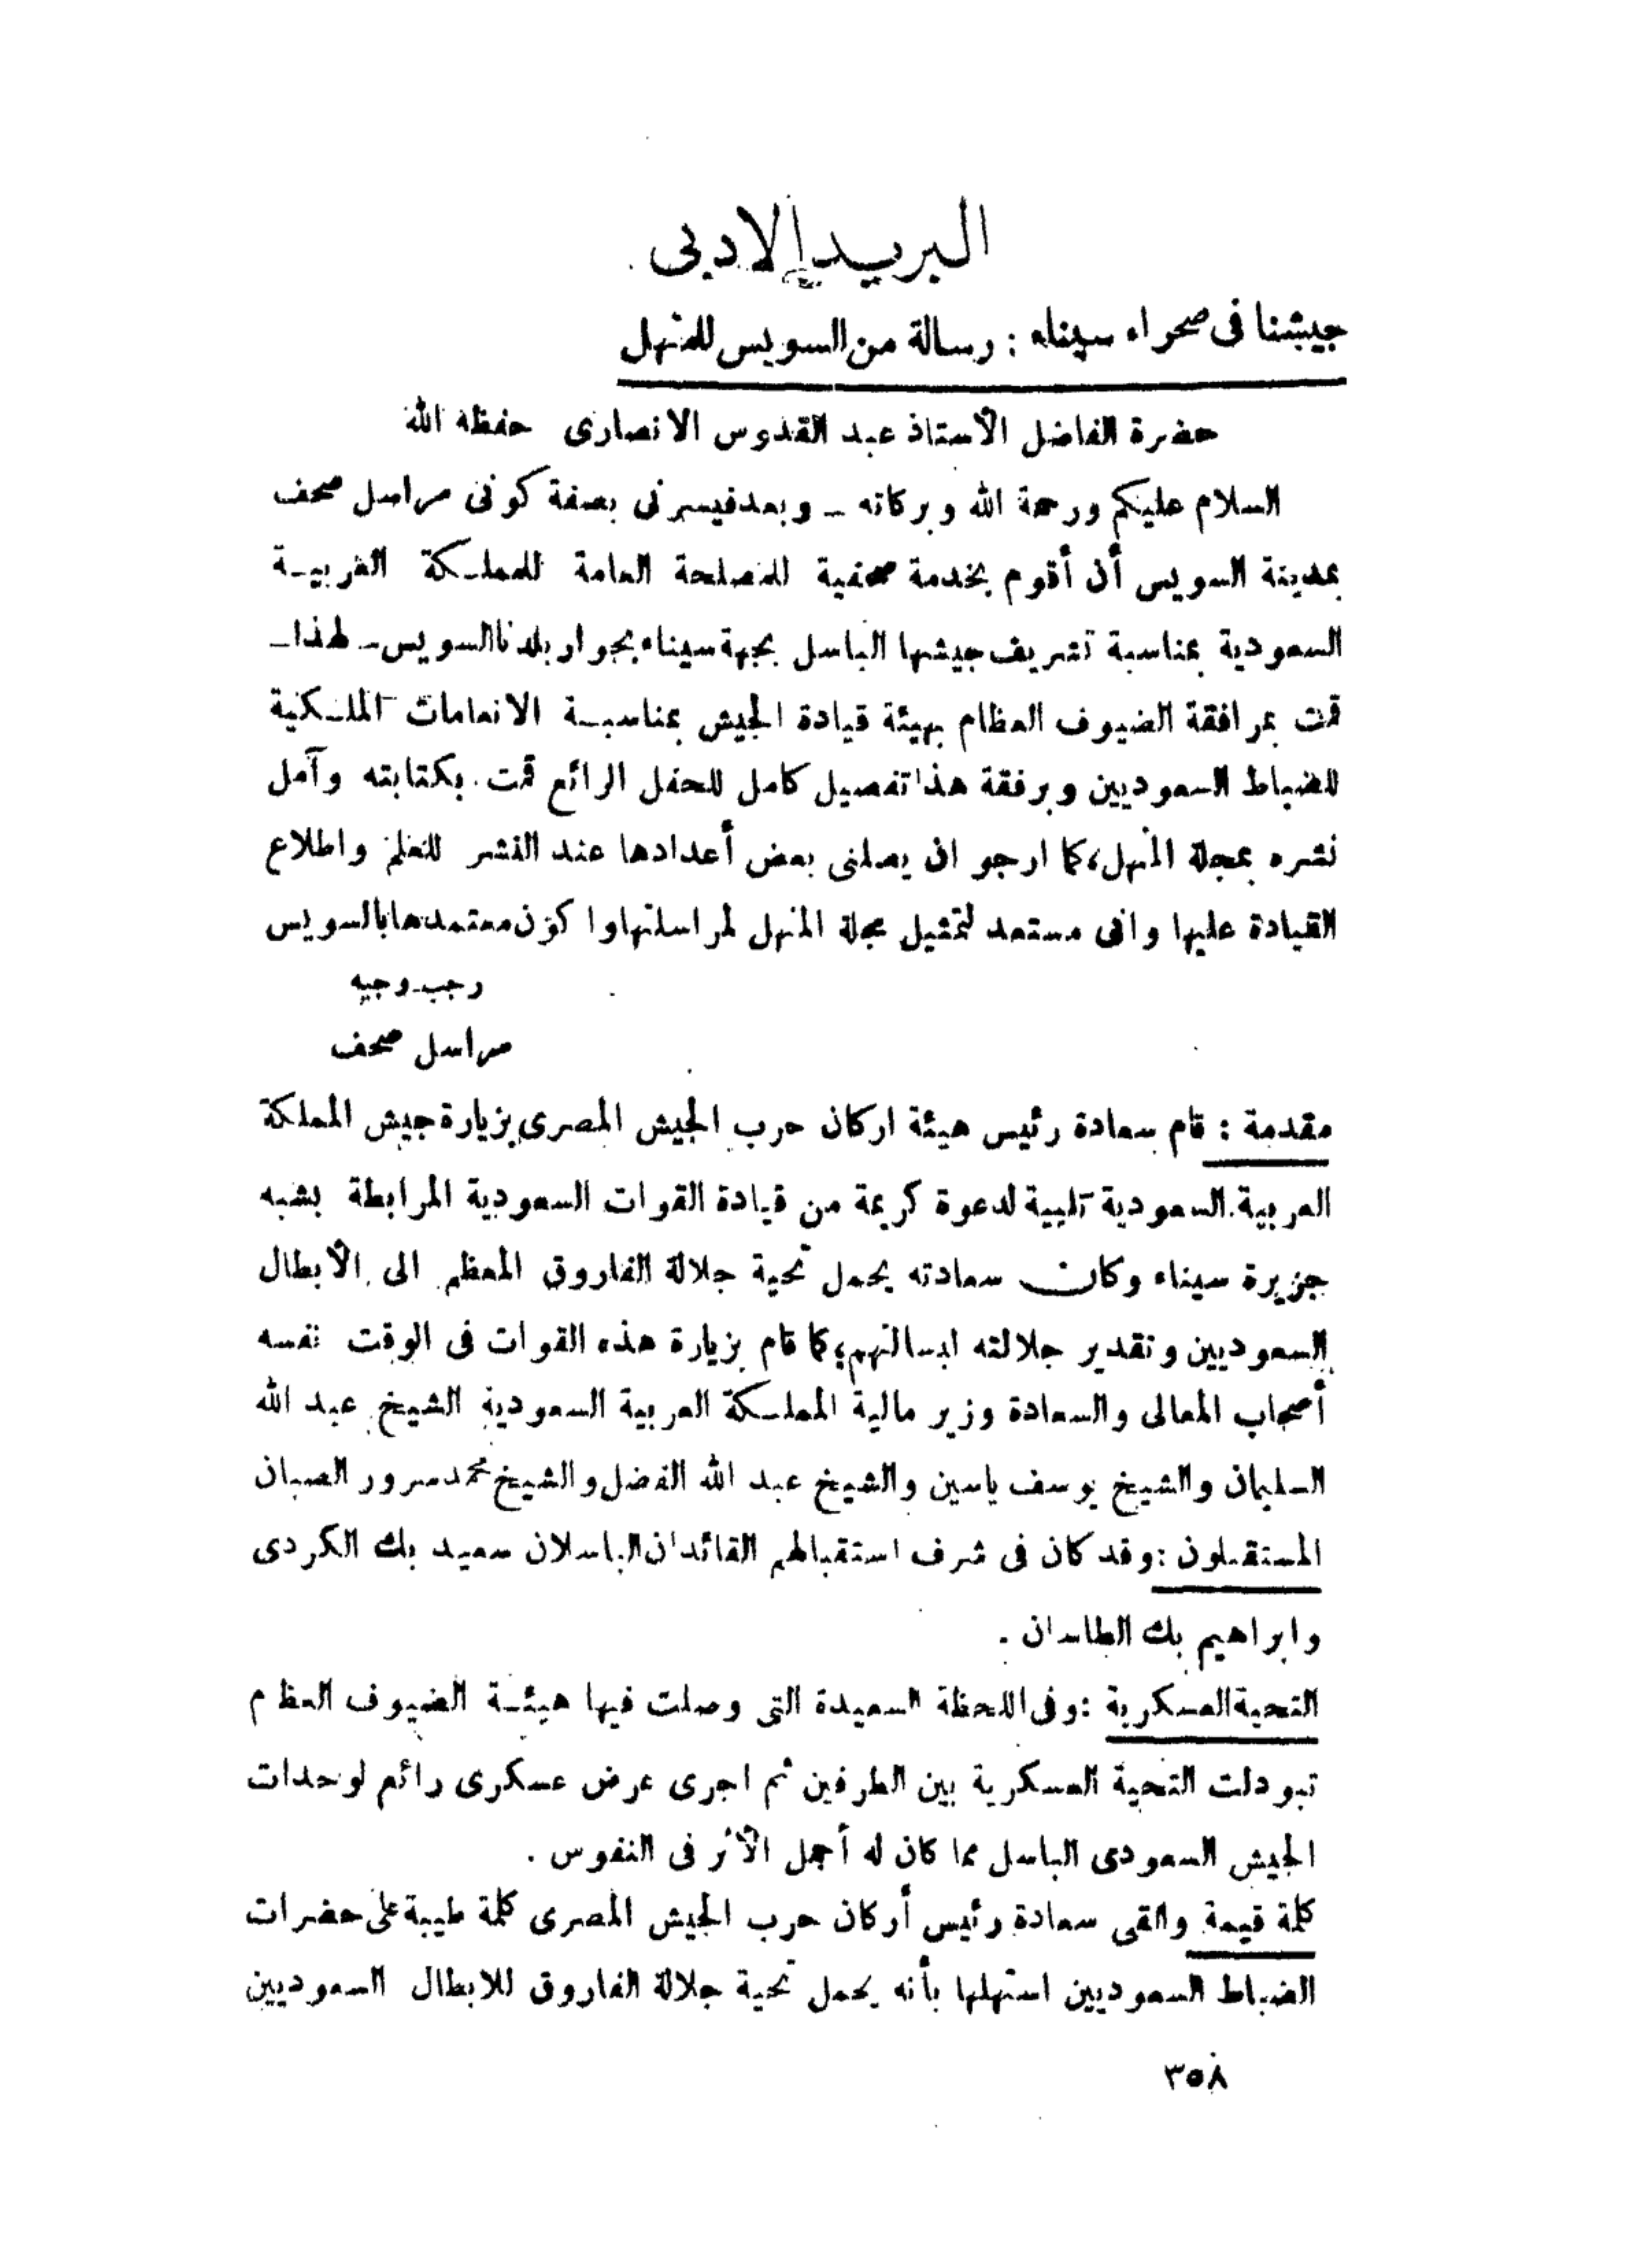 البريد الادبى
جيشنا فى صحراء سيناء : رسالة من السويس للمنهل
حضرة الفاضل الأستاذ عبد القدوس الانصارى حفظه الله
السلام عليكم ورحمة الله وبركاته ــ وبعد فيسرنى بصفة كونى مراسل صحف
بمدينة السويس أن أقوم بخدمة صحفية للمصلحة العامة للمملكة العربية
السعودية بمناسبة تشريف جيشها الباسل بجهة سيناء بجوار بلدنا السويس ــ لهذا ــ
قمت بمرافقة الضيوف العظام بهيئة قيادة الجيش بمناسبة الانعامات الملكية
للضباط السعوديين وبرفقة هذا تفصيل كامل للحفل الرائع قمت بكتابته وآمل
نشره بمجلة المنهل، كما ارجو ان يصلنى بعض أعدادها عند النشر للعلم واطلاع
القيادة عليها وانى مستعد لتمثيل مجلة المنهل لمراسلتها واكون معتمدها بالسويس
رجب وجيه
مراسل صحف
مقدمة : قام سعادة رئيس هيئة اركان حرب الجيش المصرى بزيارة جيش المملكة
العربية السعودية تلبية لدعوة كريمة من قيادة القوات السعودية المرابطة بشبه
جزيرة سيناء وكان سعادته يحمل تحية جلالة الفاروق المعظم الى الأبطال
السعوديين وتقدير جلالته لبسالتهم؛ كما قام بزيارة هذه القوات فى الوقت نفسه
أصحاب المعالى والسعادة وزير مالية المملكة العربية السعودية الشيخ عبد الله
السليمان والشيخ يوسف ياسين والشيخ عبد الله الفضل والشيخ محمد سرور الصبان
المستقبلون : وقد كان فى شرف استقبالهم القائدان الباسلان سعيد بك الكردى
وابراهيم بك الطاسان .
التحية العسكرية : وفى اللحظة السعيدة التى وصلت فيها هيئة الضيوف العظام
تبودلت التحية العسكرية بين الطرفين ثم اجرى عرض عسكرى رائع لوحدات
الجيش السعودى الباسل مما كان له أجمل الأثر فى النفوس .
كلمة قيمة والقى سعادة رئيس أركان حرب الجيش المصرى كلمة طيبة على حضرات
الضباط السعوديين استهلها بأنه يحمل تحية جلالة الفاروق للابطال السعوديين
٣٥٨